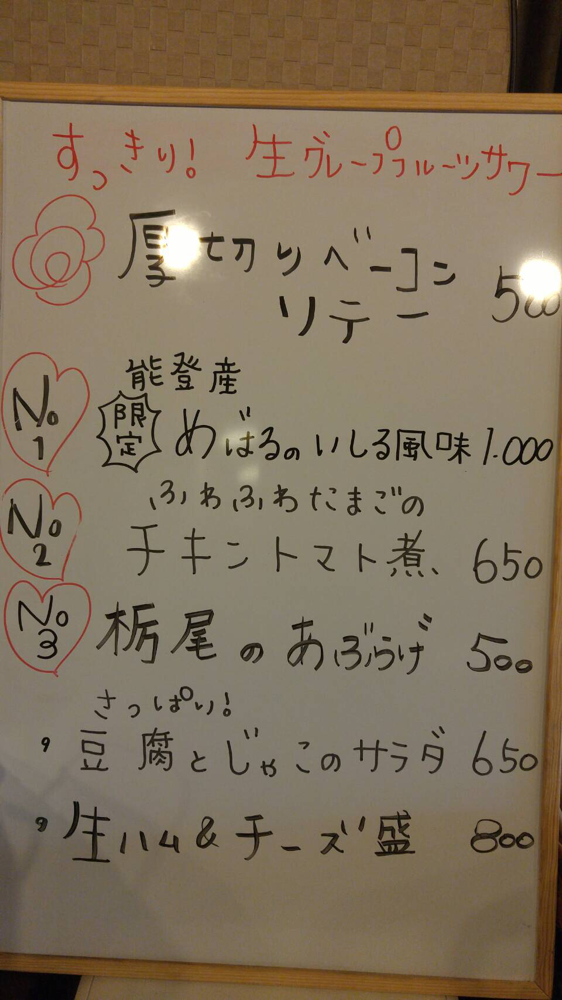 すっきり! 生グレープフルーツサワー
厚切りベーコン
ソテー 500
No
1
能登産
限定
めばるのいしる風味 1.000
No
2
ふわふわたまごの
チキントマト煮、 650
No
3
栃尾のあぶらげ 500
さっぱり!
豆腐とじゃこのサラダ 650
生ハム&チーズ盛 800